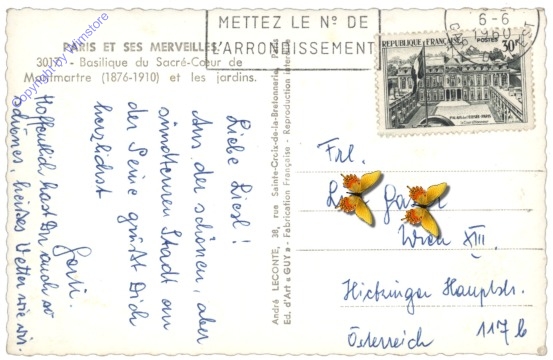 PARIS ET SES MERVEILLES
3013 - Basilique du Sacré-Cœur de
Montmartre (1876-1910) et les jardins.
Liebe Liesl!
Aus der schönen, aber
sündteuren Stadt an
der Seine grüßt Dich
herzlichst
Gerti.
Hoffentlich hast Du auch so
schönes, heißes Wetter wie wir.
André LECONTE, 38, rue Sainte-Croix-de-la-Bretonnerie, Paris
Ed. d'Art "GUY" - Fabrication Française - Reproduction interdite
METTEZ LE Nº DE
L'ARRONDISSEMENT
6-6
1960
REPUBLIQUE FRANÇAISE
POSTES
30F
Frl.
Wien XIII.
Hietzinger Hauptstr.
117b
Österreich
Copyright by Wimstore